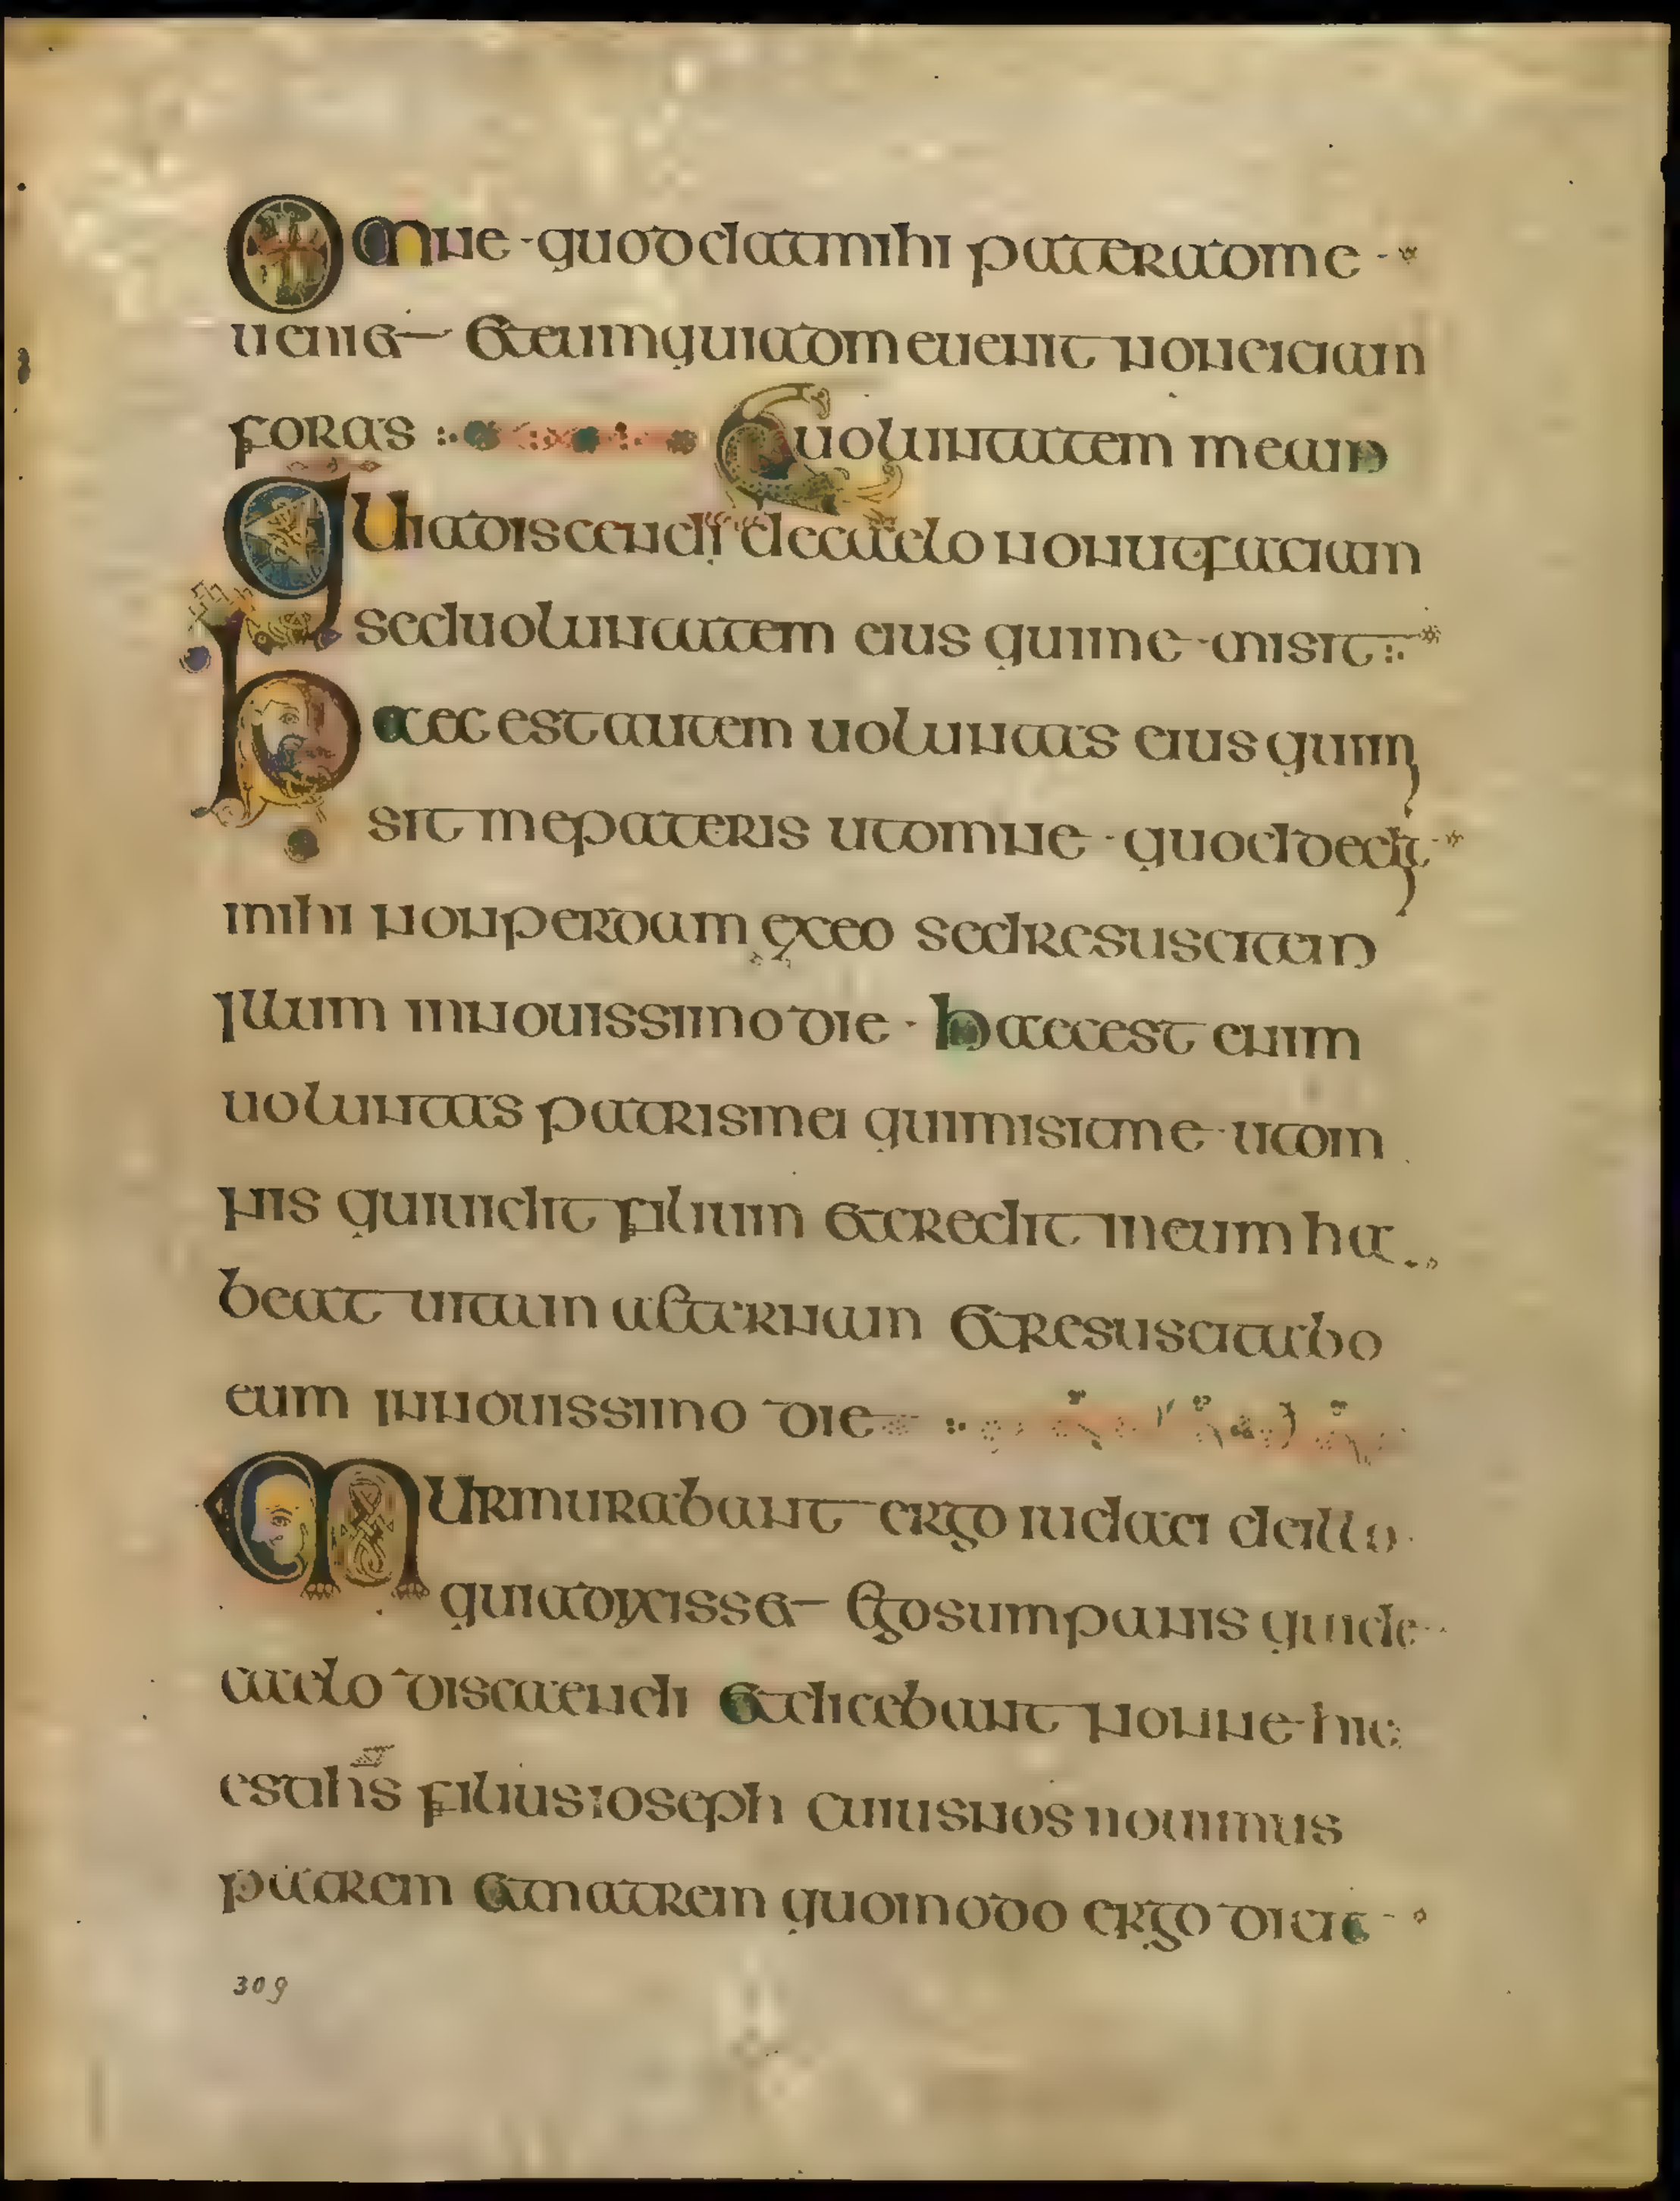 Omne quod dat mihi pater ad me
ueniet et eum qui ad me uenit non eiciam
foras uoluntatem meam
quia discendi de caelo non ut faciam
sed uoluntatem eius qui me misit
haec est autem uoluntas eius qui mi
sit me pateris ut omne quod dedit
mihi non perdam ex eo sed resuscitem
illum in nouissimo die haec est enim
uoluntas patris mei qui misit me ut om
nis qui uidit filium et credit in eum ha
beat uitam aeternam et resuscitabo
eum in nouissimo die
Murmurabant ergo iudaei de illo
quia dixisset ego sum panis qui de
caelo discaendi et dicebant nonne hic
est ihs filius ioseph cuius nos nouimus
patrem et matrem quomodo ergo dicit
309